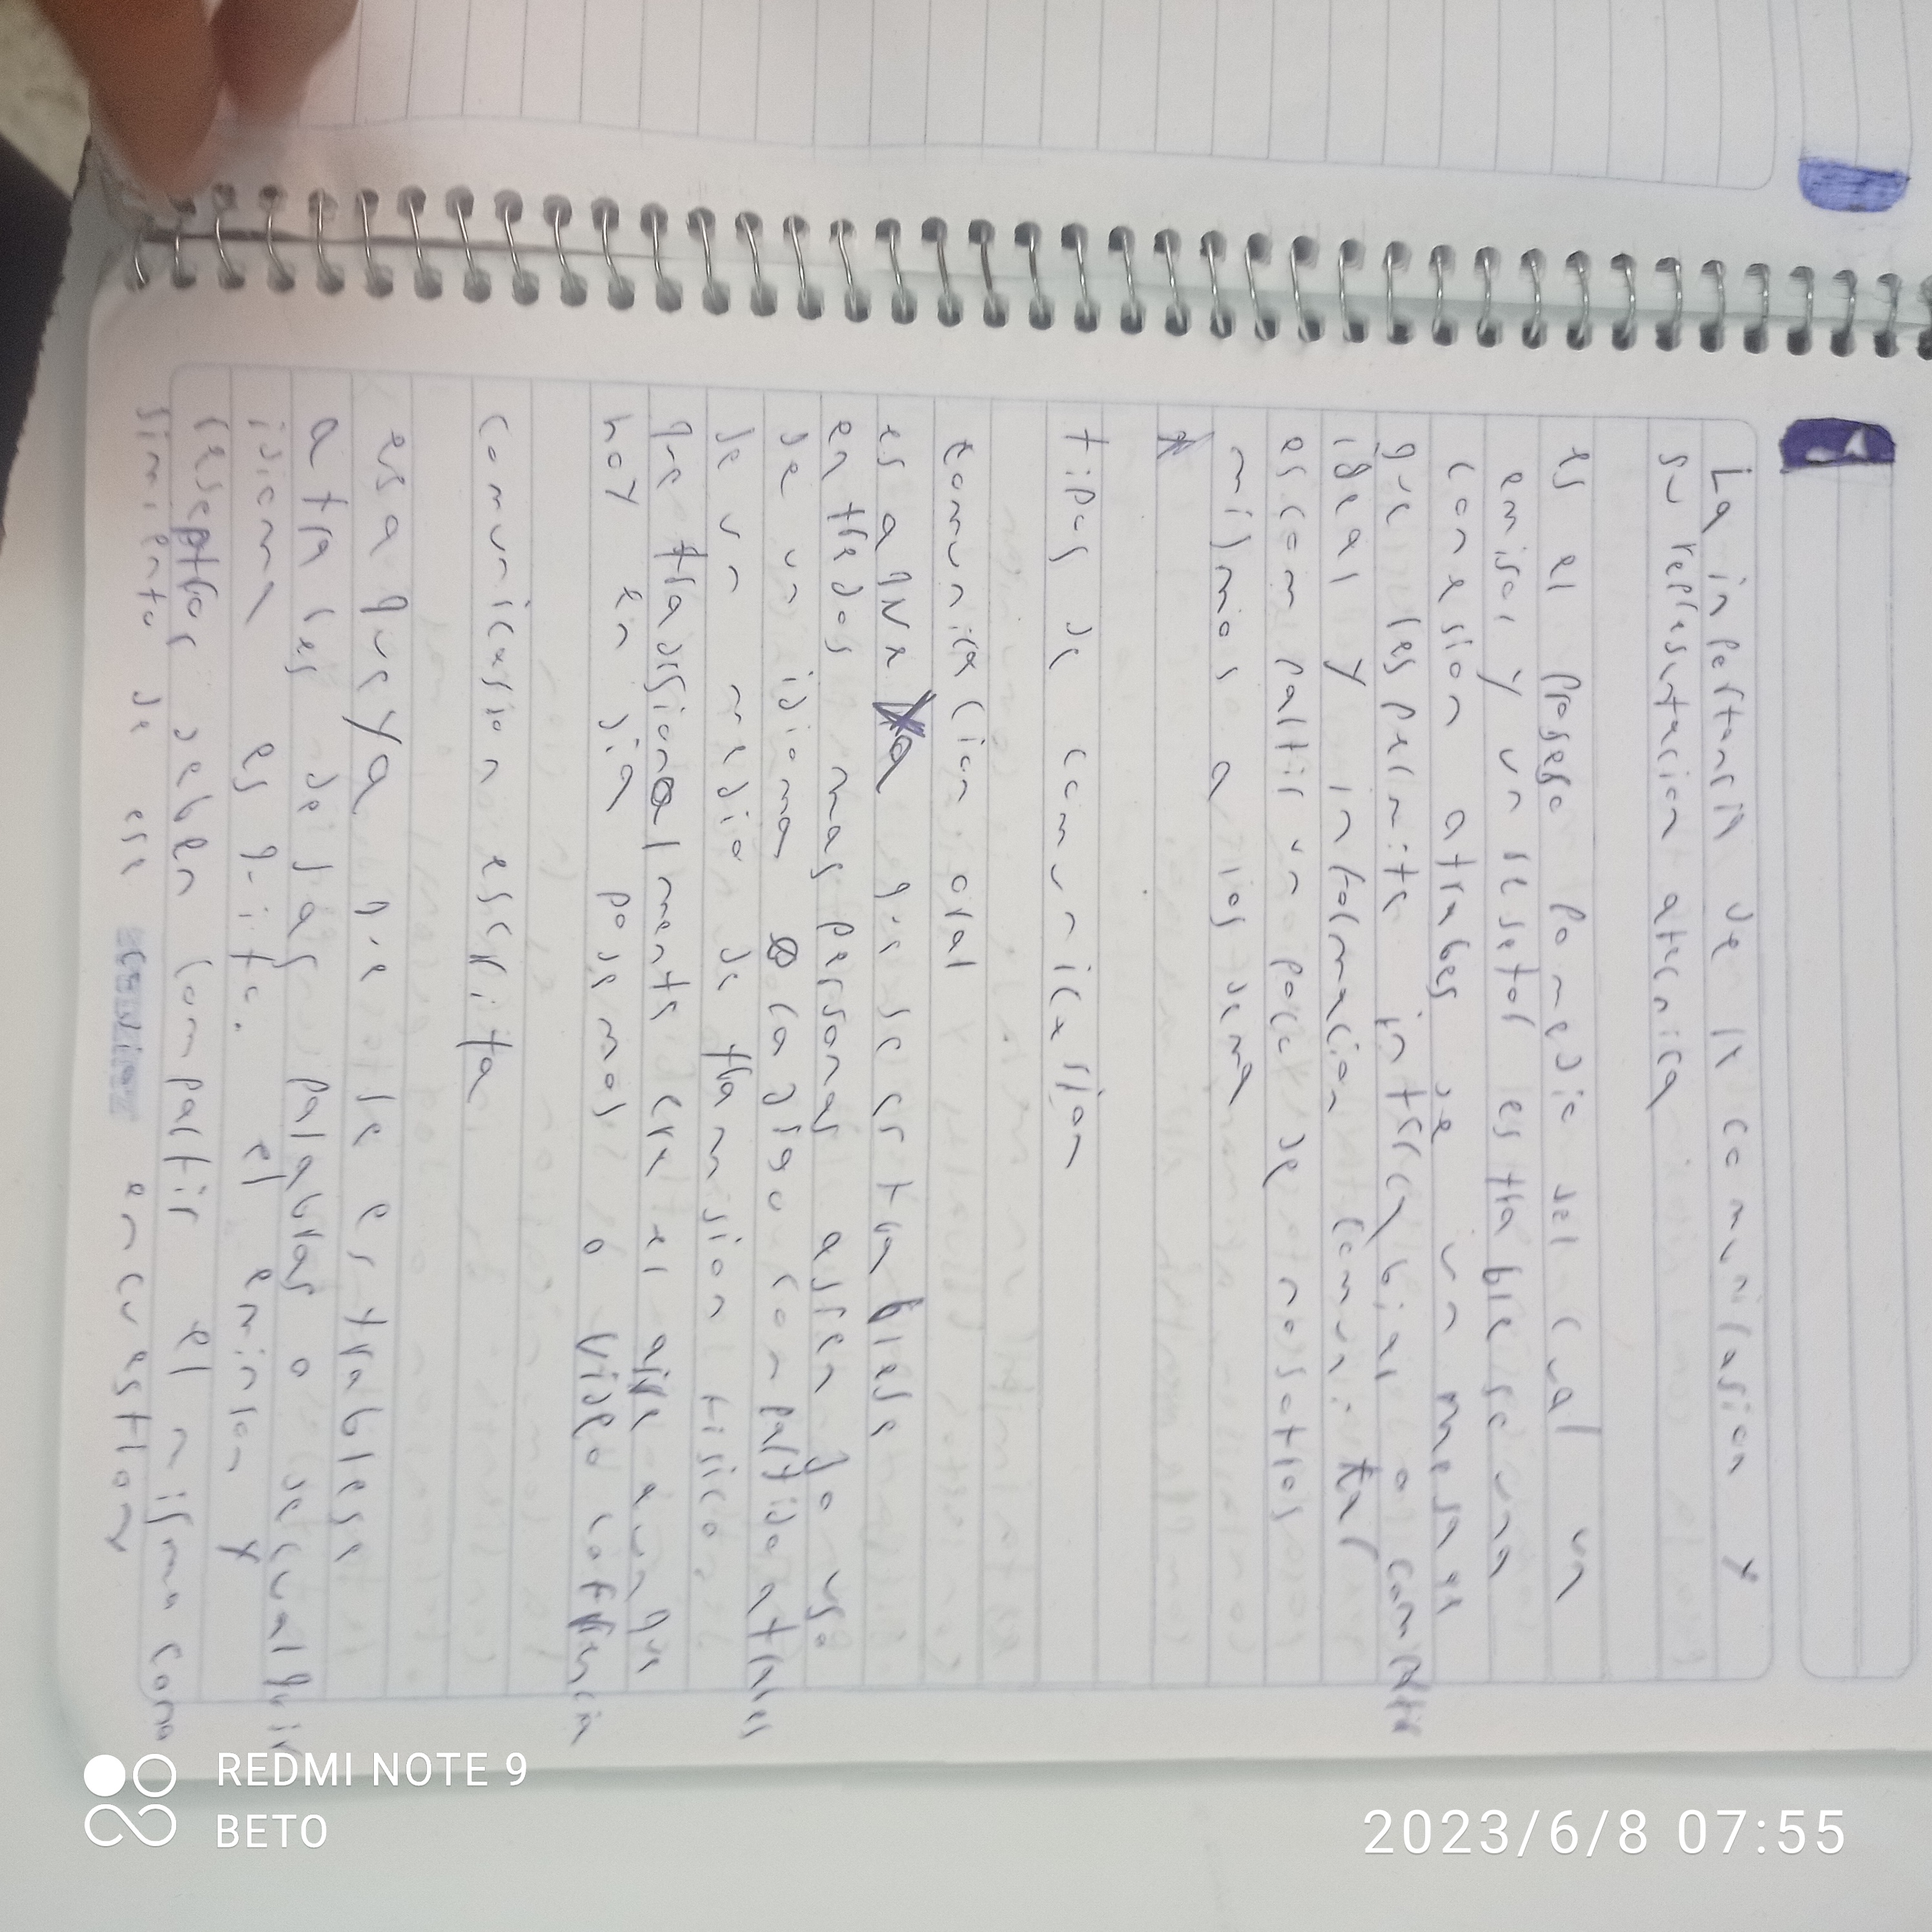 La inportancia de la comunicasion y
su representacion atecnica
es el proseso pomedio del cual un
emisor y un resetor estrablese una
conexsion atrabes de un mesaje
que les permite intercanbiar o compartir
ideas y informacion comunitar
es compartir un poco de nosotros
mismos a los demas
tipos de comunicasion
comunicacion oral
es aquella que se estrablese
entre dos mas personas asiendo uso
de un idioma o codigo compartido atraves
de un medio de transmision fisico
que tradisionalmente era el aire aunque
hoy en dia posemos o video conferencia
comunicasion escrita
es aquella que se estrablese
atrabes de las palabras o de cualquier
idioma escrito. el emisor y
reseptor deben compartir el mismo cono
simiento de ese en cuestion
REDMI NOTE 9
BETO
2023/6/8 07:55